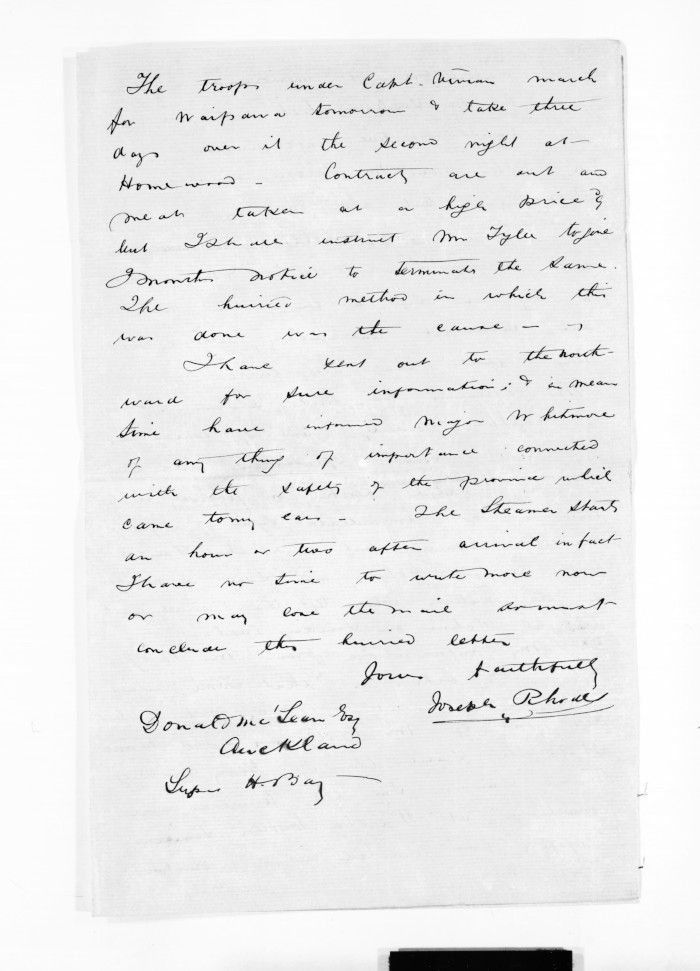 The troops under Capt. Vivian march
for Waipawa tomorrow & take three
days over it the second night at
Homewood - Contracts are out and
meat taken at a high price
but I shall instruct Mr Tylee to give
3 months notice to terminate the same.
The hurried method in which this
was done was the cause -
I have sent out to the north-
ward for sure information; & in mean
time have informed Major Whitmore
of any thing of importance connected
with the safety of the province which
came to my ears - The Steamer starts
an hour or two after arrival in fact
I have no time to write more now
or may lose the mail so must
conclude this hurried letter
Yours faithfully
Joseph Rhodes
Donald McLean Esq
Auckland
Supr H. Bay